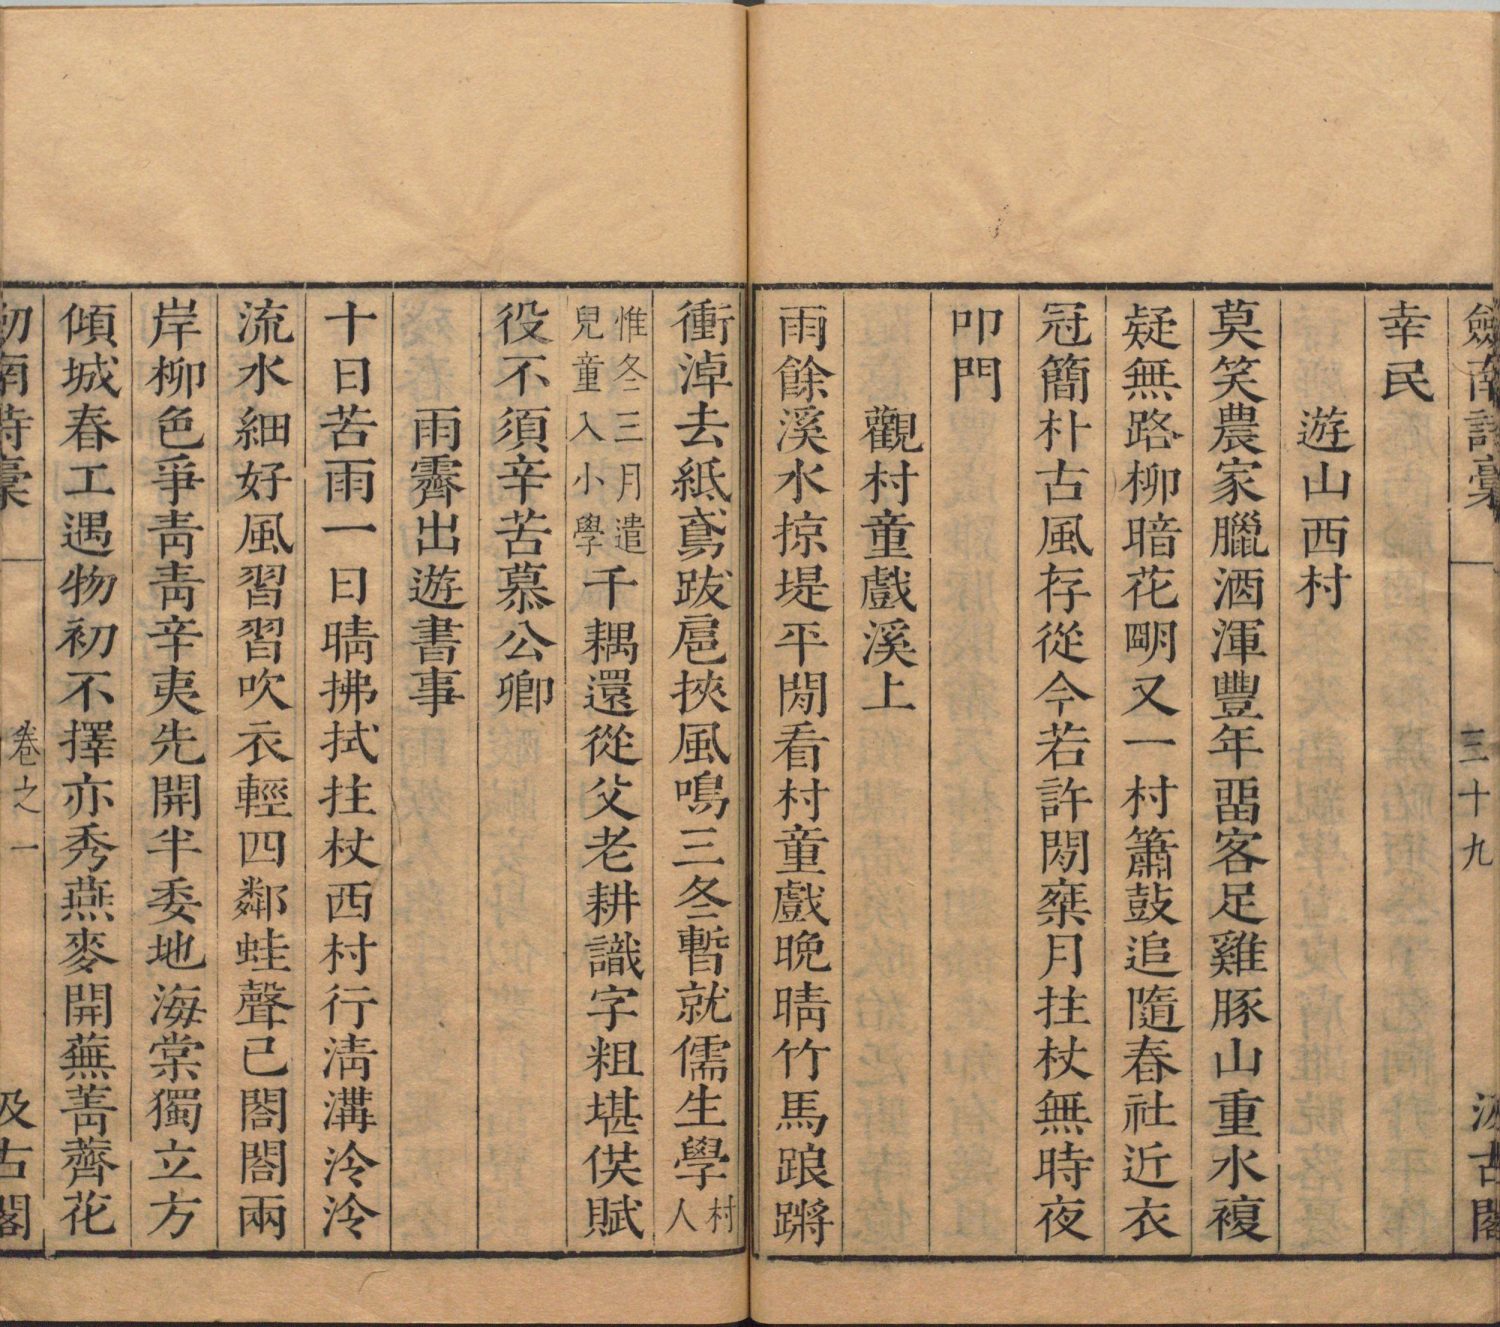 劒南詩稾 三十九 汲古閣
幸民
遊山西村
莫笑農家臘酒渾豐年畱客足雞豚山重水複
疑無路柳暗花明又一村簫鼓追隨春社近衣
冠簡朴古風存從今若許閒椉月拄杖無時夜
叩門
觀村童戲溪上
雨餘溪水掠堤平閒看村童戲晚晴竹馬踉蹡
衝淖去紙鳶跋扈挾風鳴三冬暫就儒生學村人
惟冬三月遣兒童入小學千耦還從父老耕識字粗堪供賦
役不須辛苦慕公卿
雨霽出遊書事
十日苦雨一日晴拂拭拄杖西村行淸溝泠泠
流水細好風習習吹衣輕四鄰蛙聲已閤閤兩
岸柳色爭靑靑辛夷先開半委地海棠獨立方
傾城春工遇物初不擇亦秀燕麥開蕪菁薺花
劒南詩稾 卷之一 汲古閣